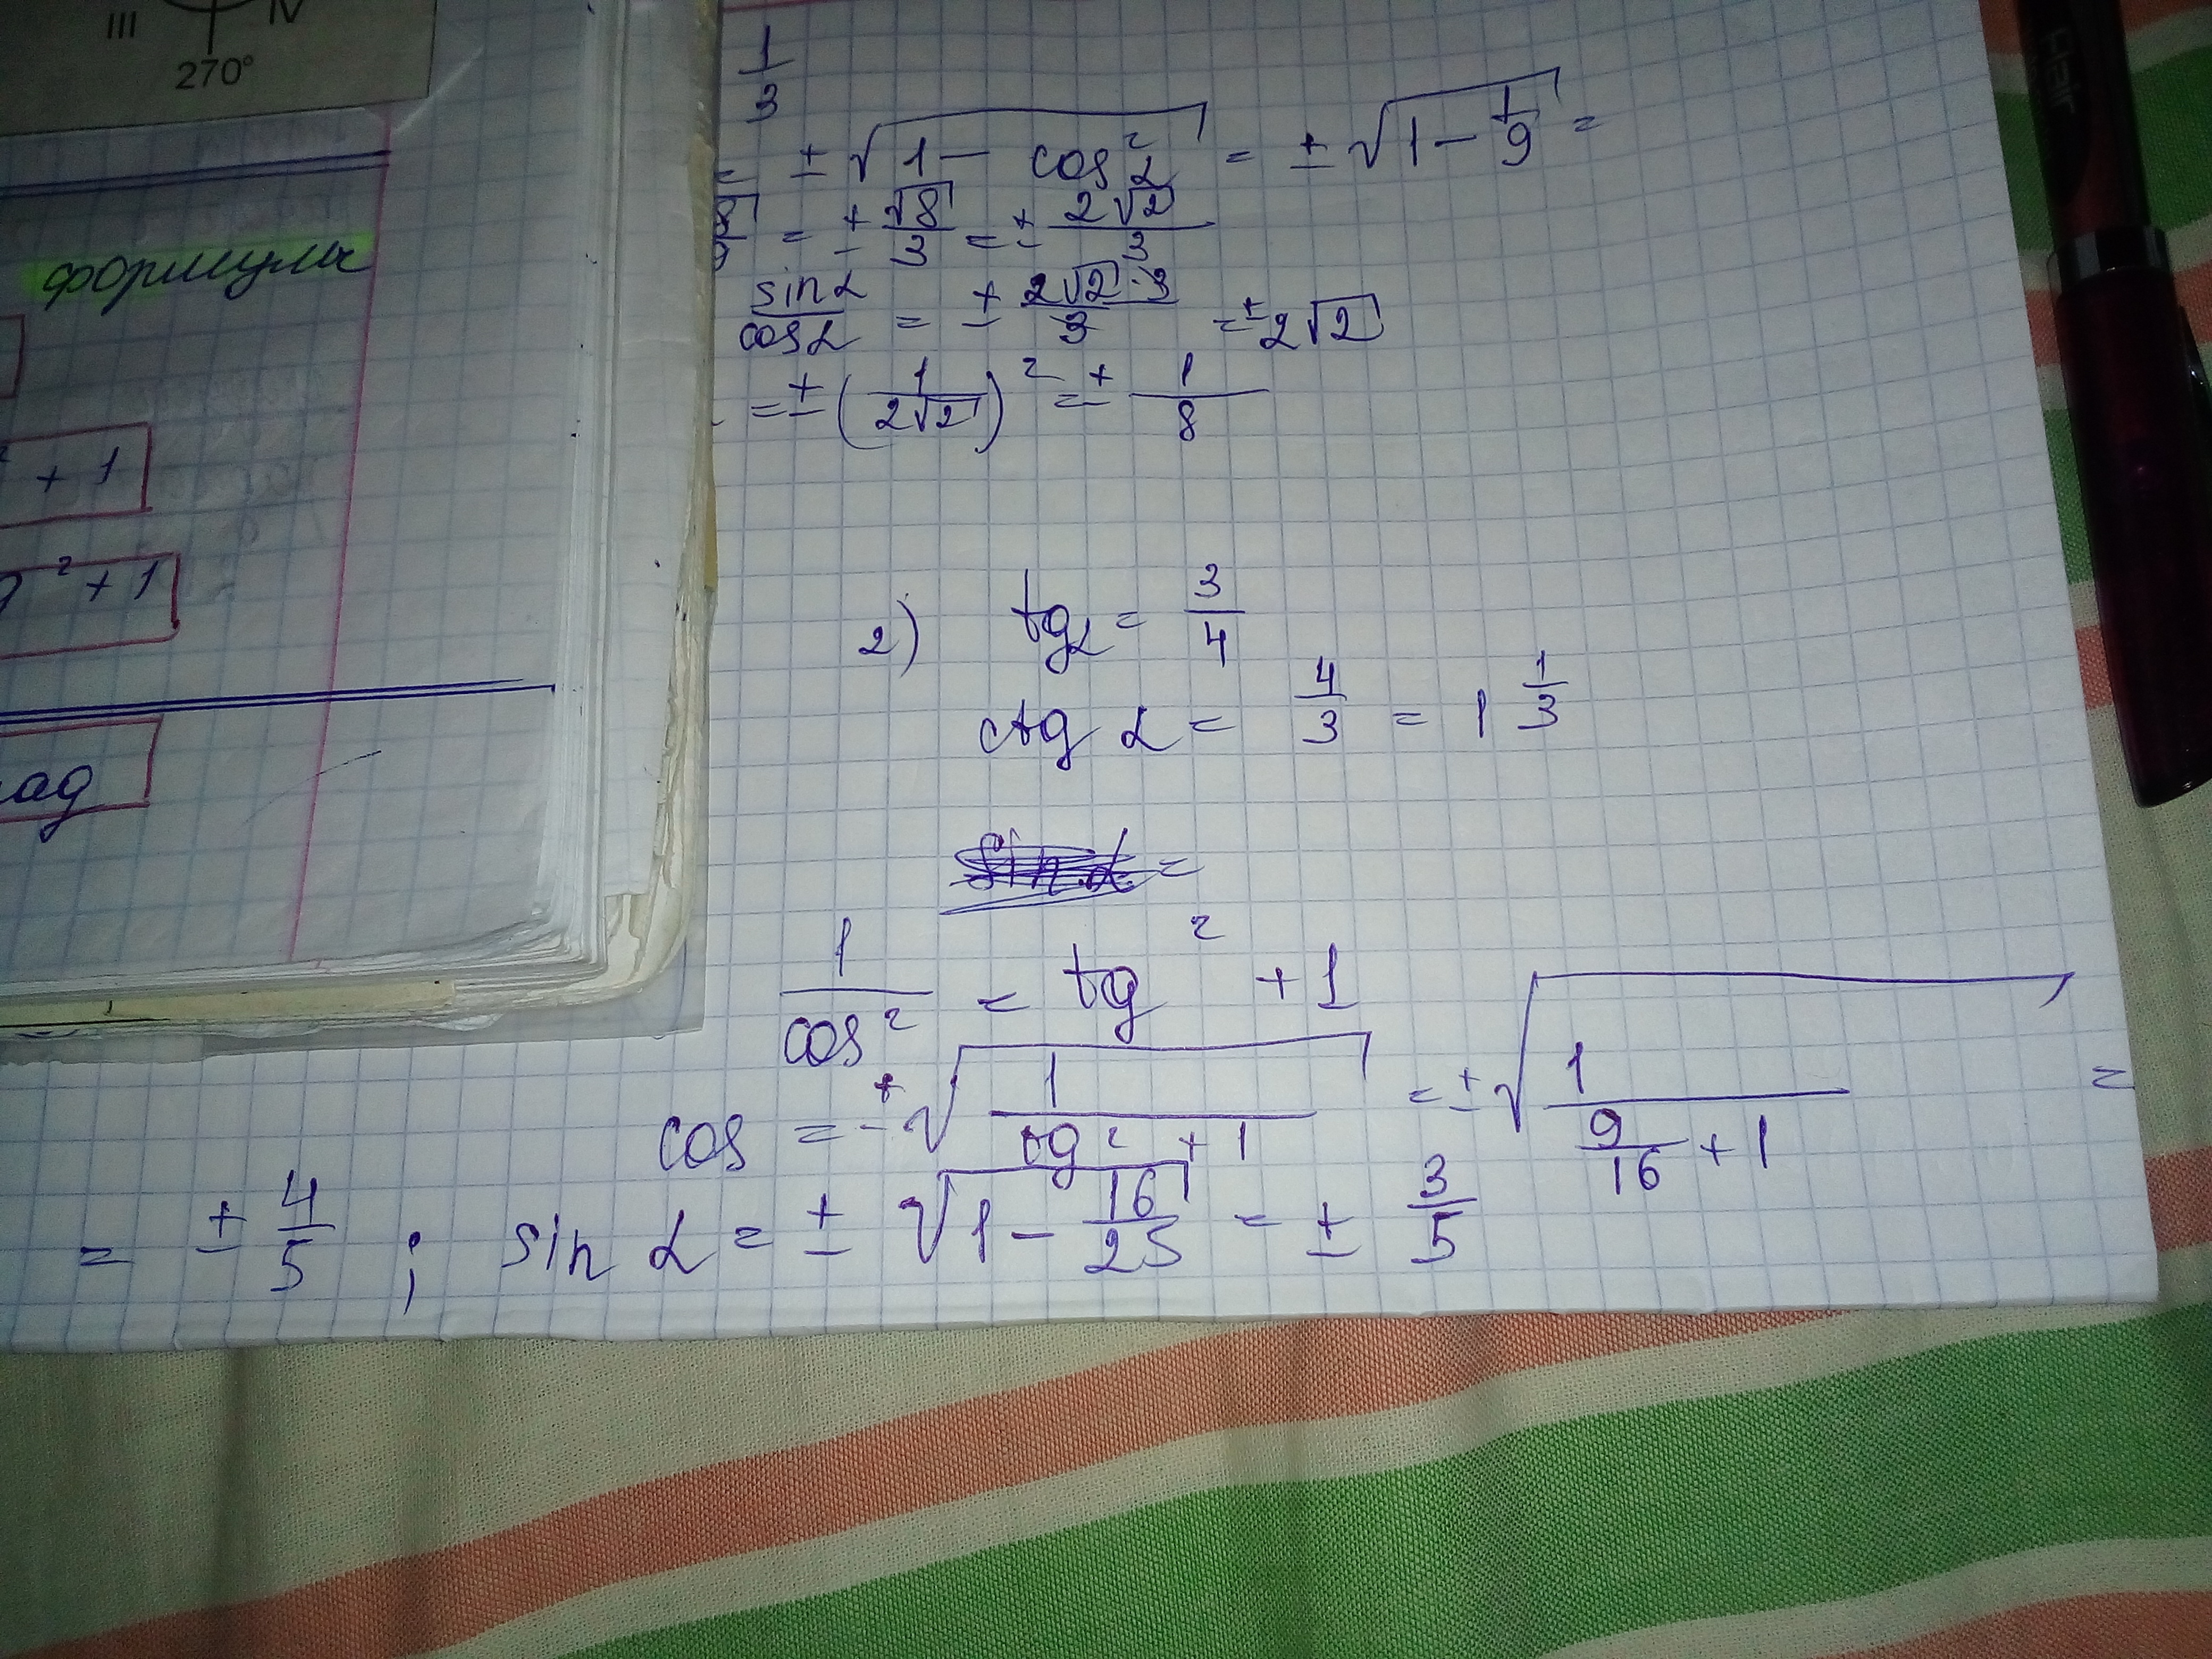 III IV
270°
формулы
² + 1
g² + 1
ад
1/3
= ± √(1 − cos²α) = ± √(1 − 1/9) =
= ± √8/3 = ± 2√2/3
sinα/cosα = ± 2√2·3/3 = ± 2√2
= ± (1/2√2)² = ± 1/8
2) tgα = 3/4
ctg α = 4/3 = 1 1/3
sin α =
1/cos² = tg² + 1
cos = ± √(1/(tg² + 1)) = ± √(1/(9/16 + 1)) =
= ± 4/5 ; sin α = ± √(1 − 16/25) = ± 3/5
Hair